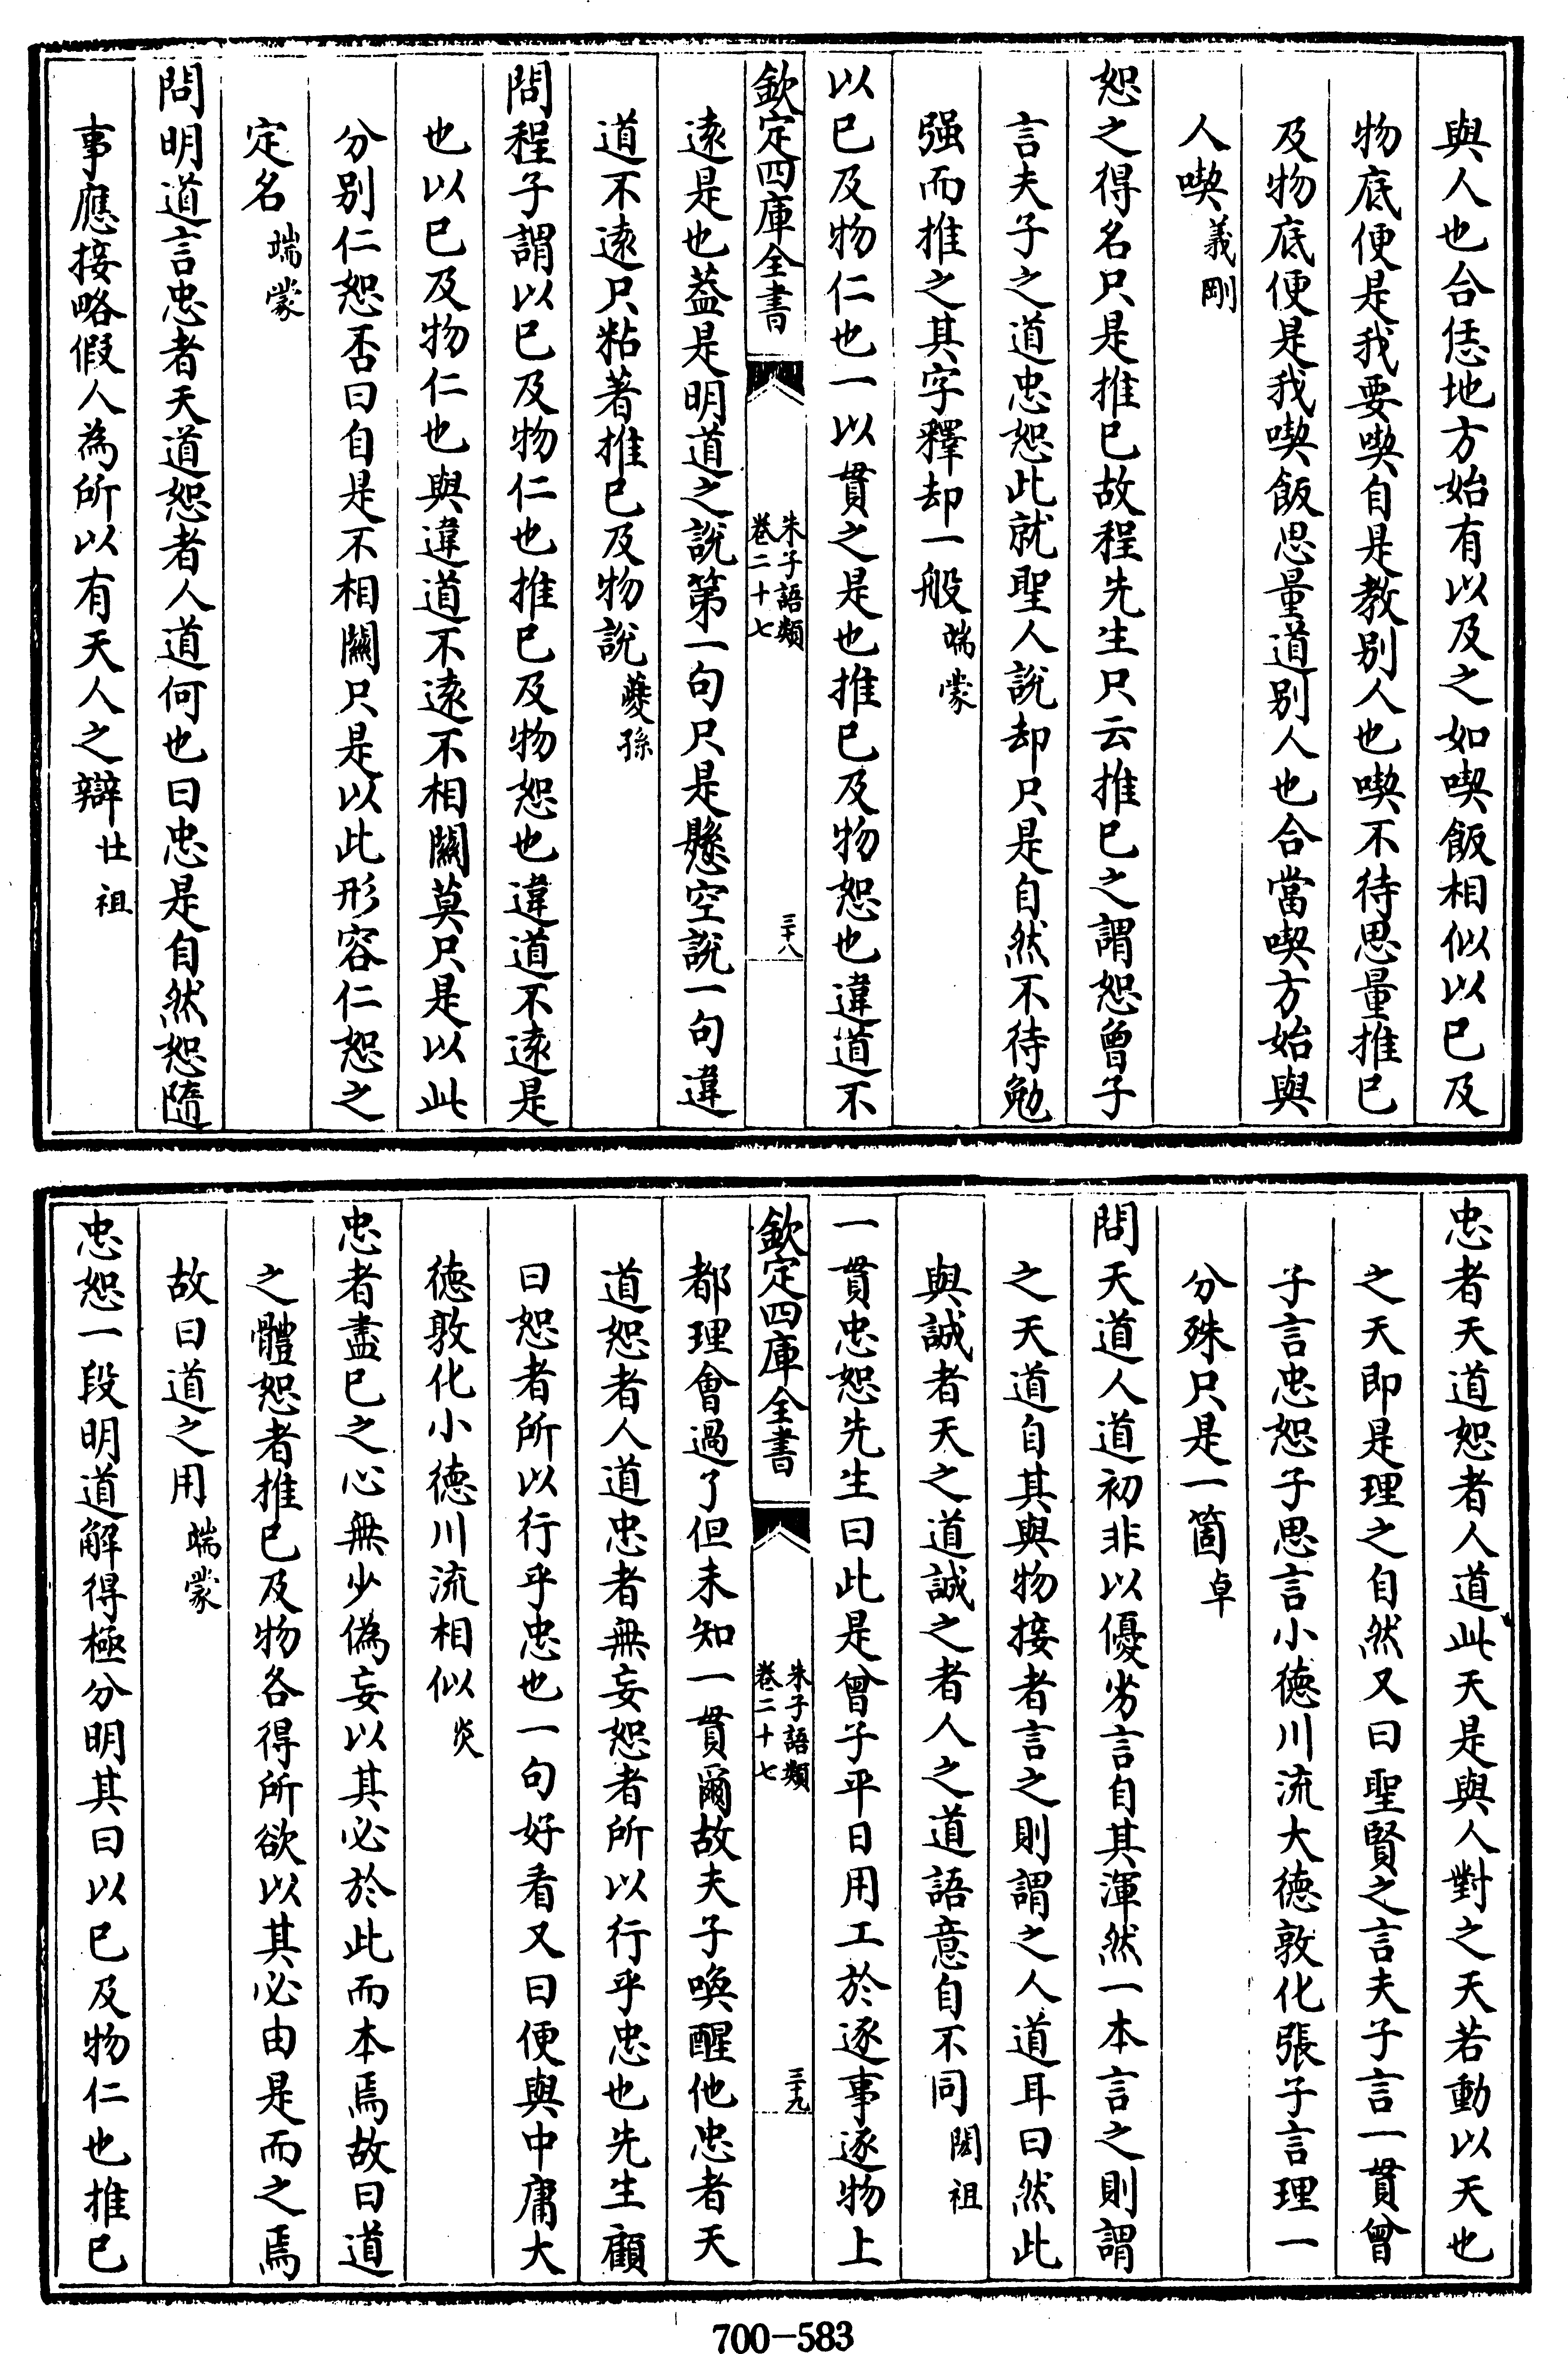 與人也合恁地方始有以及之如喫飯相似以已及
物底便是我要喫自是教别人也喫不待思量推已
及物底便是我喫飯思量道别人也合當喫方始與
人喫義剛
恕之得名只是推已故程先生只云推已之謂恕曾子
言夫子之道忠恕此就聖人說却只是自然不待勉
强而推之其字釋却一般端蒙
以已及物仁也一以貫之是也推已及物恕也違道不
欽定四庫全書
朱子語類
卷二十七
三十八
遠是也葢是明道之說第一句只是懸空說一句違
道不遠只粘著推已及物說夔孫
問程子謂以已及物仁也推已及物恕也違道不遠是
也以已及物仁也與違道不遠不相關莫只是以此
分别仁恕否曰自是不相關只是以此形容仁恕之
定名端蒙
問明道言忠者天道恕者人道何也曰忠是自然恕隨
事應接略假人為所以有天人之辯壯祖
忠者天道恕者人道此天是與人對之天若動以天也
之天即是理之自然又曰聖賢之言夫子言一貫曾
子言忠恕子思言小徳川流大徳敦化張子言理一
分殊只是一箇卓
問天道人道初非以優劣言自其渾然一本言之則謂
之天道自其與物接者言之則謂之人道耳曰然此
與誠者天之道誠之者人之道語意自不同閎祖
一貫忠恕先生曰此是曾子平日用工於逐事逐物上
欽定四庫全書
朱子語類
卷二十七
三十九
都理會過了但未知一貫爾故夫子喚醒他忠者天
道恕者人道忠者無妄恕者所以行乎忠也先生顧
曰恕者所以行乎忠也一句好看又曰便與中庸大
徳敦化小徳川流相似炎
忠者盡已之心無少偽妄以其必於此而本焉故曰道
之體恕者推已及物各得所欲以其必由是而之焉
故曰道之用端蒙
忠恕一段明道解得極分明其曰以已及物仁也推已
700-583